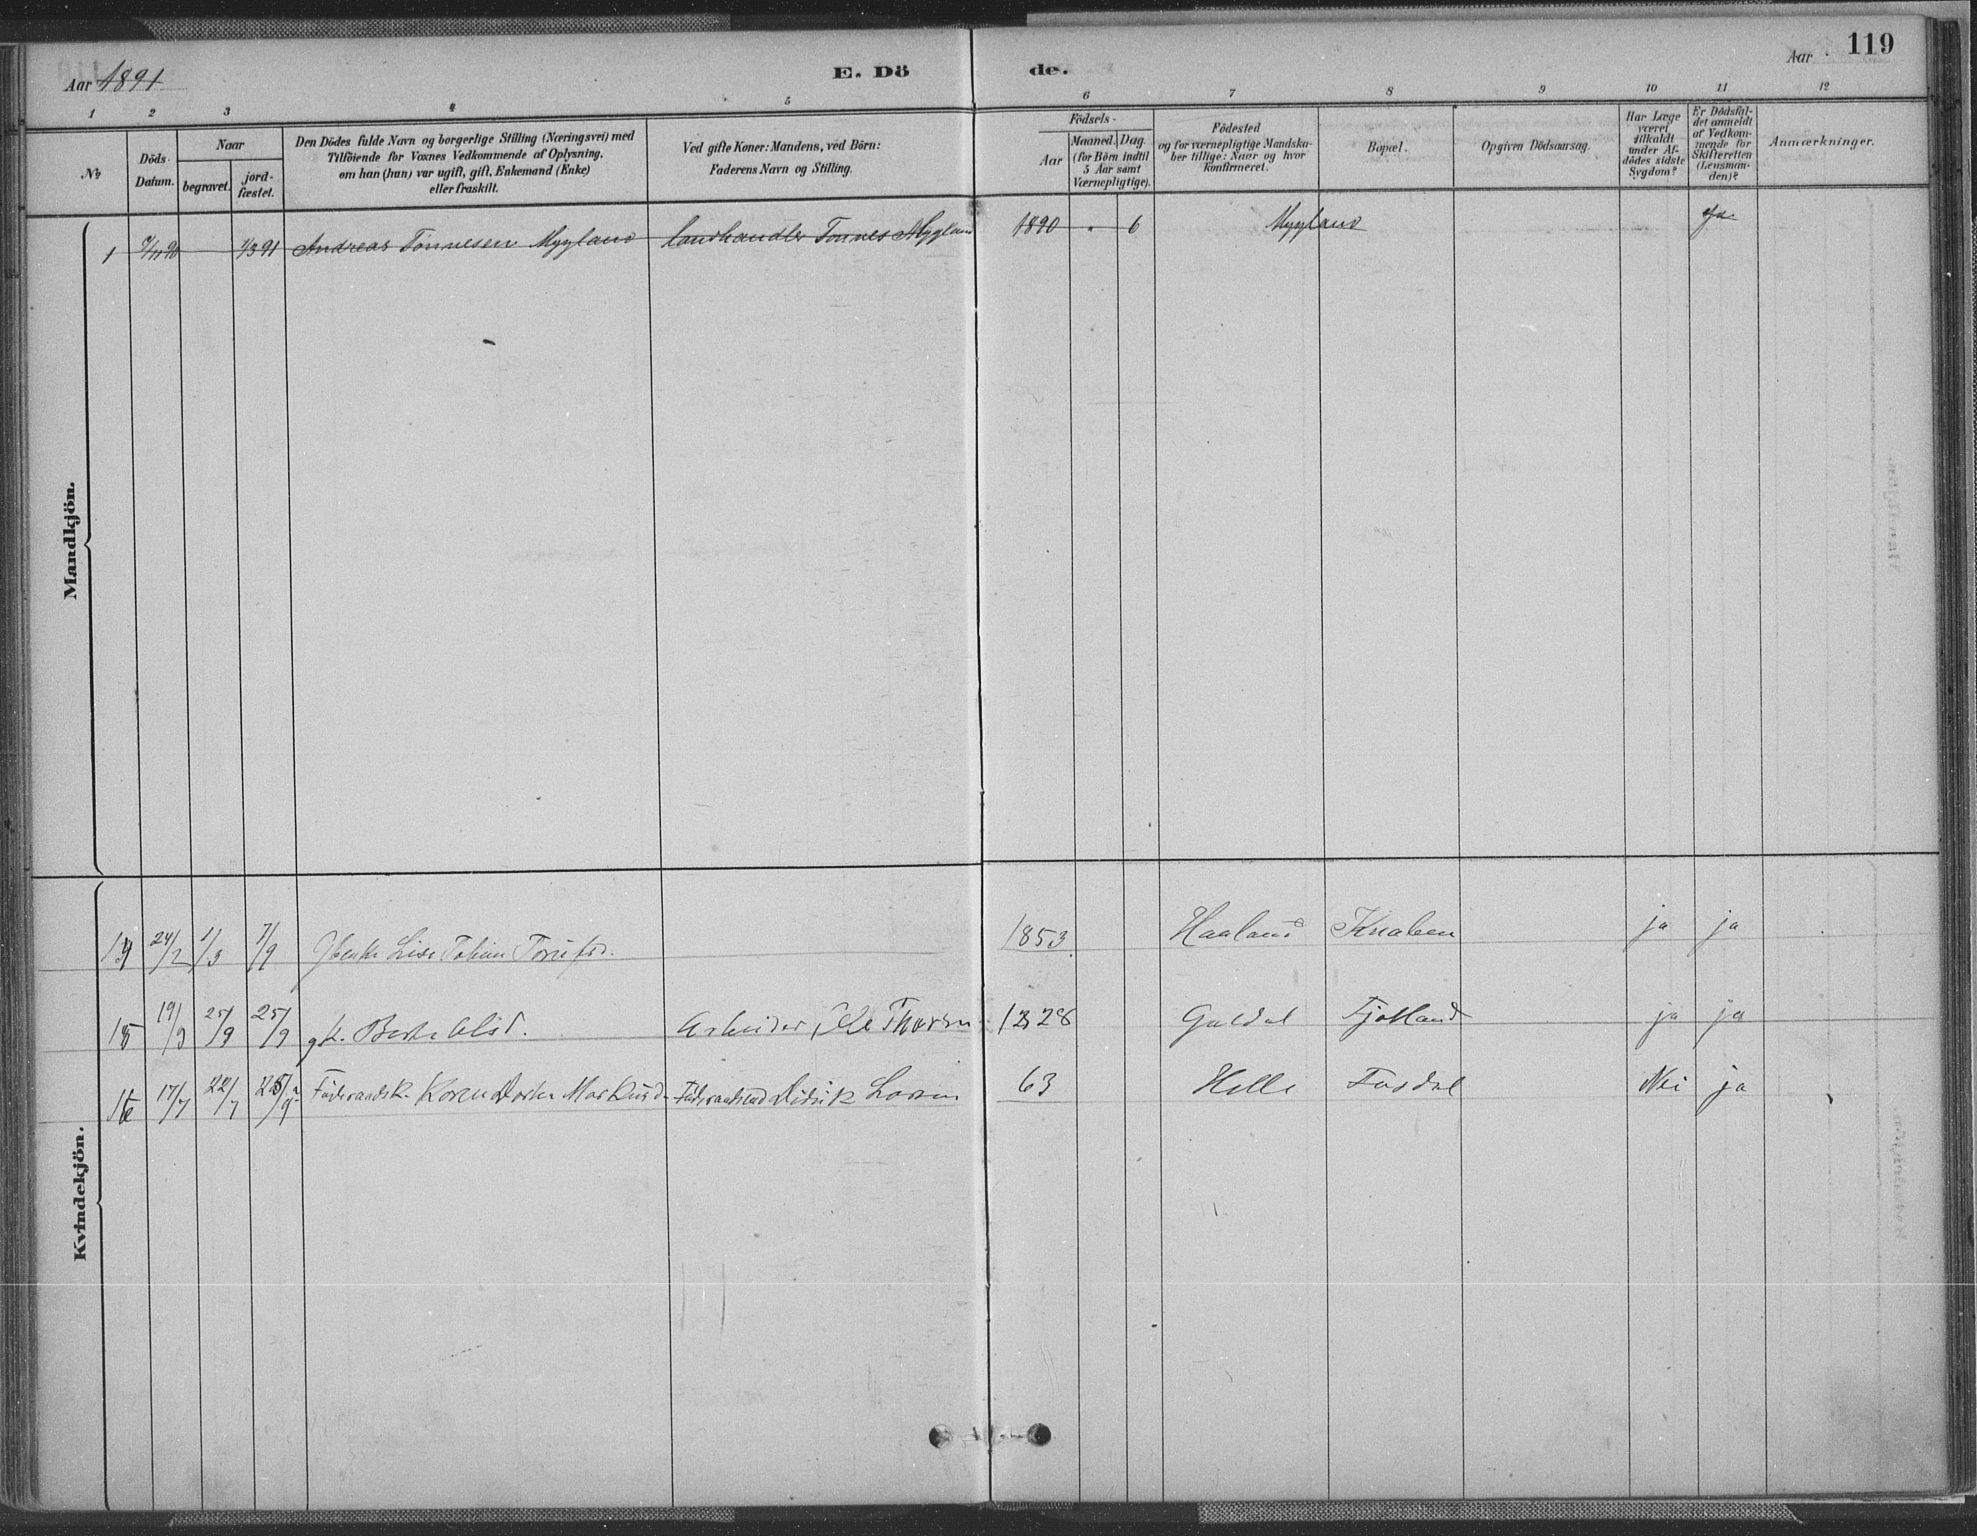 Aar 1891
E. Dö
de.
Aar
119
1 2 3 4 5 6 7 8 9 10 11 12
No
Döds Datum.
Naar
begravet.
jordfæstet.
Den Dödes fulde Navn og borgerlige Stilling (Næringsvei) med
Tilföiende for Voxnes Vedkommende af Oplysning,
om han (hun) var ugift, gift, Enkemand (Enke)
eller fraskilt.
Ved gifte Koner: Mandens, ved Börn:
Faderens Navn og Stilling.
Födsels-
Aar
Maaned. Dag.
(for Börn indtil
5 Aar samt
Værnepligtige).
Födested
og for værnepligtige Mandskaber
tillige: Naar og hvor
konfirmeret.
Bopæl.
Opgiven Dödsaarsag.
Har Læge
været
tilkaldt
under Afdödes
sidste
Sygdom?
Er Dödsfaldet
anmeldt
af Vedkommende
for
Skifteretten
(Lensmanden)?
Anmærkninger.
Mandkjön.
1 Andreas Tönnesen Mygland Landhandler Tönnes Mygland 1890 " 6 Mygland ja
Kvindekjön.
24/2 1/3 7/9 Lise 1853 Haaland Knaben ja ja
15 25/9 25/9 gk. Arbeider Ole 28 Fjotland ja ja
16 17/7 22/7 Föderaadsk. Karen Dorthe Didrik 63 Helle Nei ja